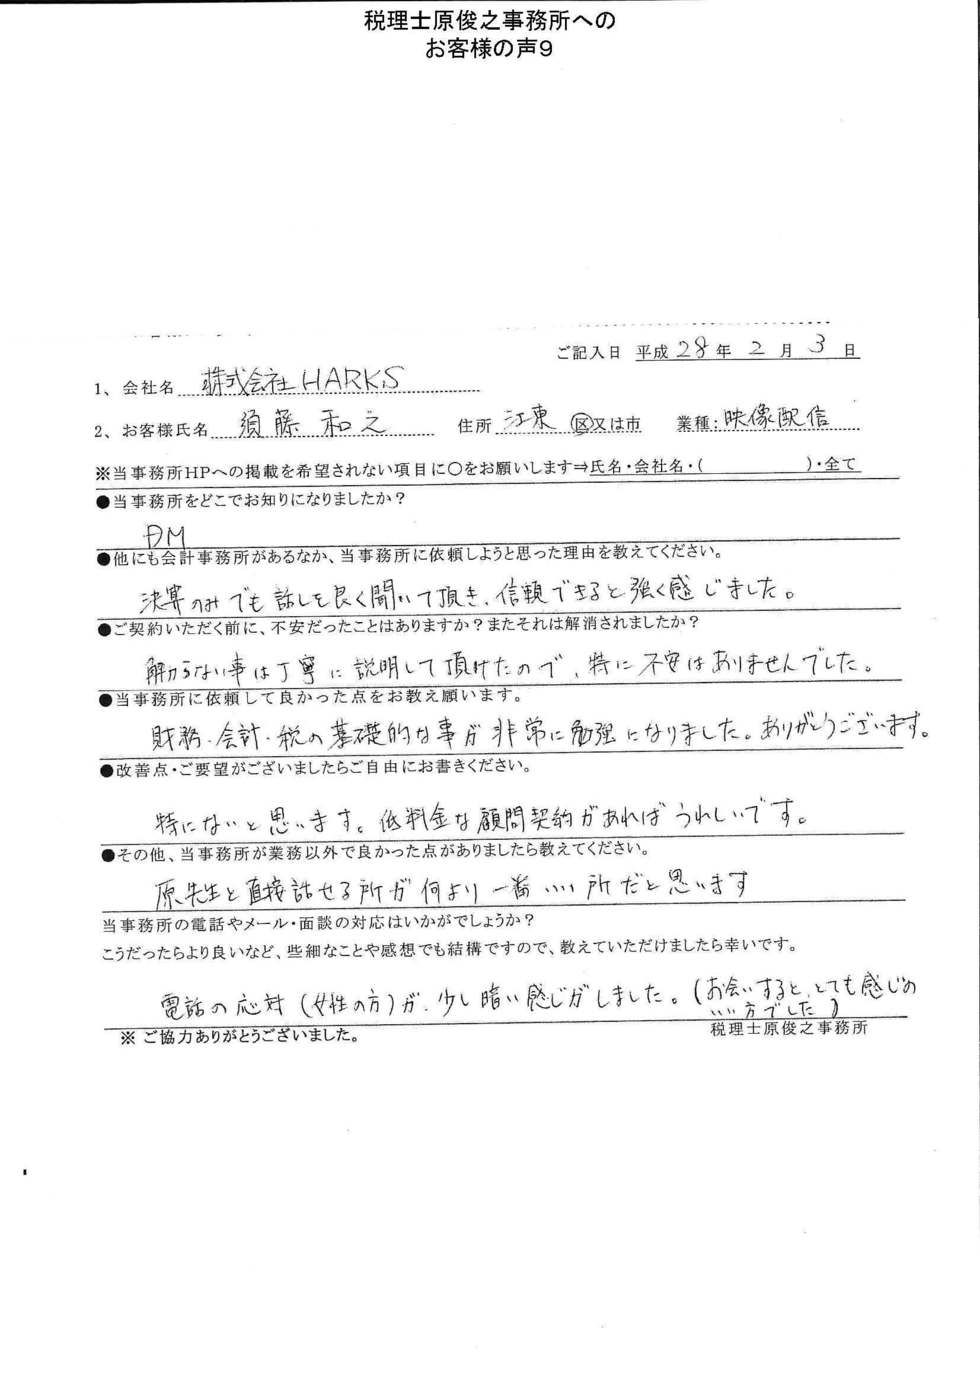 税理士原俊之事務所への
お客様の声９
ご記入日 平成 28 年 2 月 3 日
1、会社名 株式会社HARKS
2、お客様氏名 須藤 和之 住所 江東 区又は市 業種：映像配信
※当事務所HPへの掲載を希望されない項目に〇をお願いします⇒氏名・会社名・（　　　　　　）・全て
●当事務所をどこでお知りになりましたか？
DM
●他にも会計事務所があるなか、当事務所に依頼しようと思った理由を教えてください。
決算のみでも話しを良く聞いて頂き、信頼できると強く感じました。
●ご契約いただく前に、不安だったことはありますか？またそれは解消されましたか？
解からない事は丁寧に説明して頂けたので、特に不安はありませんでした。
●当事務所に依頼して良かった点をお教え願います。
財務・会計・税の基礎的な事が非常に勉強になりました。ありがとうございます。
●改善点・ご要望がございましたらご自由にお書きください。
特にないと思います。低料金な顧問契約があればうれしいです。
●その他、当事務所が業務以外で良かった点がありましたら教えてください。
原先生と直接話せる所が何より一番いい所だと思います
当事務所の電話やメール・面談の対応はいかがでしょうか？
こうだったらより良いなど、些細なことや感想でも結構ですので、教えていただけましたら幸いです。
電話の応対（女性の方）が、少し暗い感じがしました。（お会いすると、とても感じの
いい方でした）
※ ご協力ありがとうございました。 税理士原俊之事務所